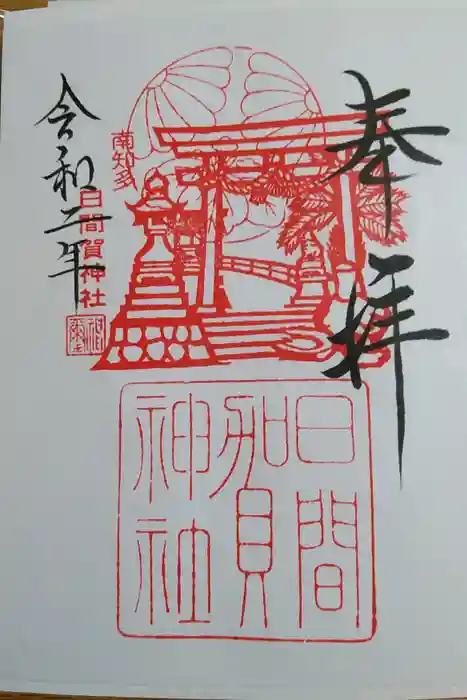 奉拝
南知多
日間賀神社
令和二年
日間賀神社